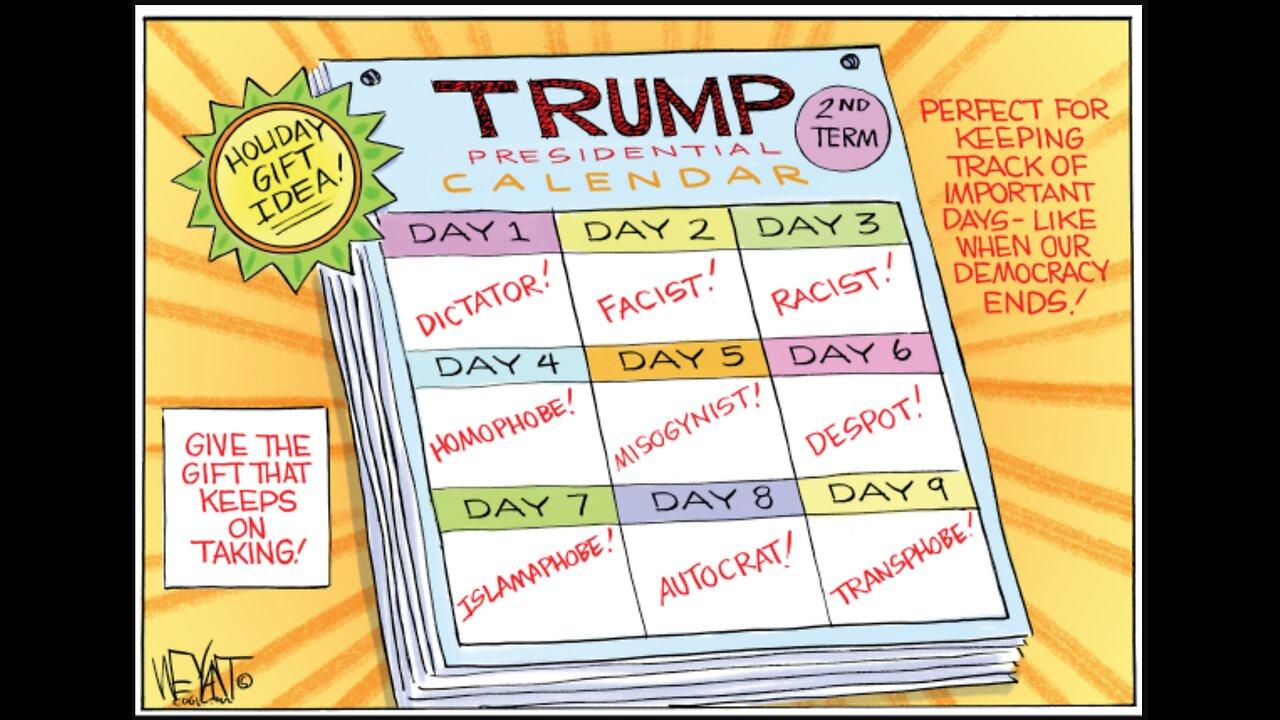 HOLIDAY
GIFT
IDEA!
TRUMP
PRESIDENTIAL
CALENDAR
2ND
TERM
PERFECT FOR
KEEPING
TRACK OF
IMPORTANT
DAYS- LIKE
WHEN OUR
DEMOCRACY
ENDS!
DAY 1 DAY 2 DAY 3
DICTATOR! FACIST! RACIST!
DAY 4 DAY 5 DAY 6
HOMOPHOBE! MISOGYNIST! DESPOT!
DAY 7 DAY 8 DAY 9
ISLAMAPHOBE! AUTOCRAT! TRANSPHOBE!
GIVE THE
GIFT THAT
KEEPS
ON
TAKING!
WEYANT©